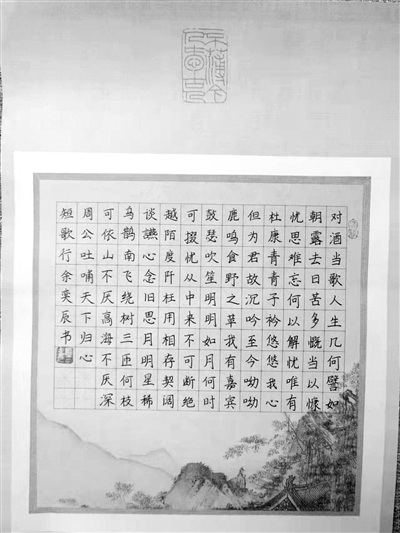 对酒当歌人生几何譬如
朝露去日苦多慨当以慷
忧思难忘何以解忧唯有
杜康青青子衿悠悠我心
但为君故沉吟至今呦呦
鹿鸣食野之苹我有嘉宾
鼓瑟吹笙明明如月何时
可掇忧从中来不可断绝
越陌度阡枉用相存契阔
谈讌心念旧恩月明星稀
乌鹊南飞绕树三匝何枝
可依山不厌高海不厌深
周公吐哺天下归心
短歌行余奕辰书